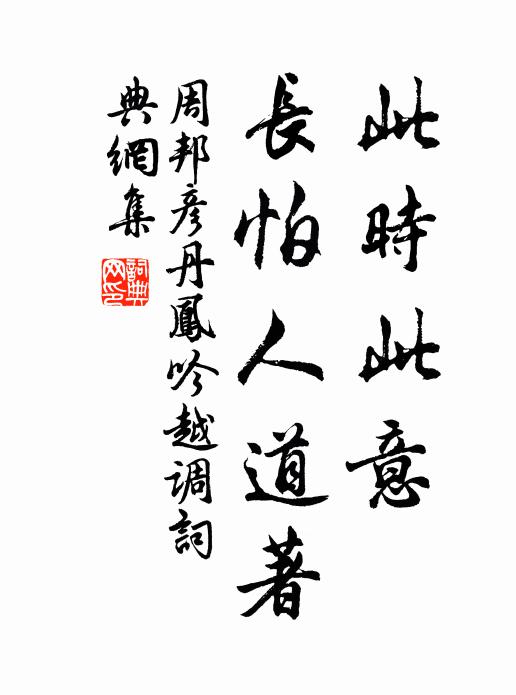 此時此意
長怕人道著
周邦彦丹鳳吟越调詞
典網集
詞典网印